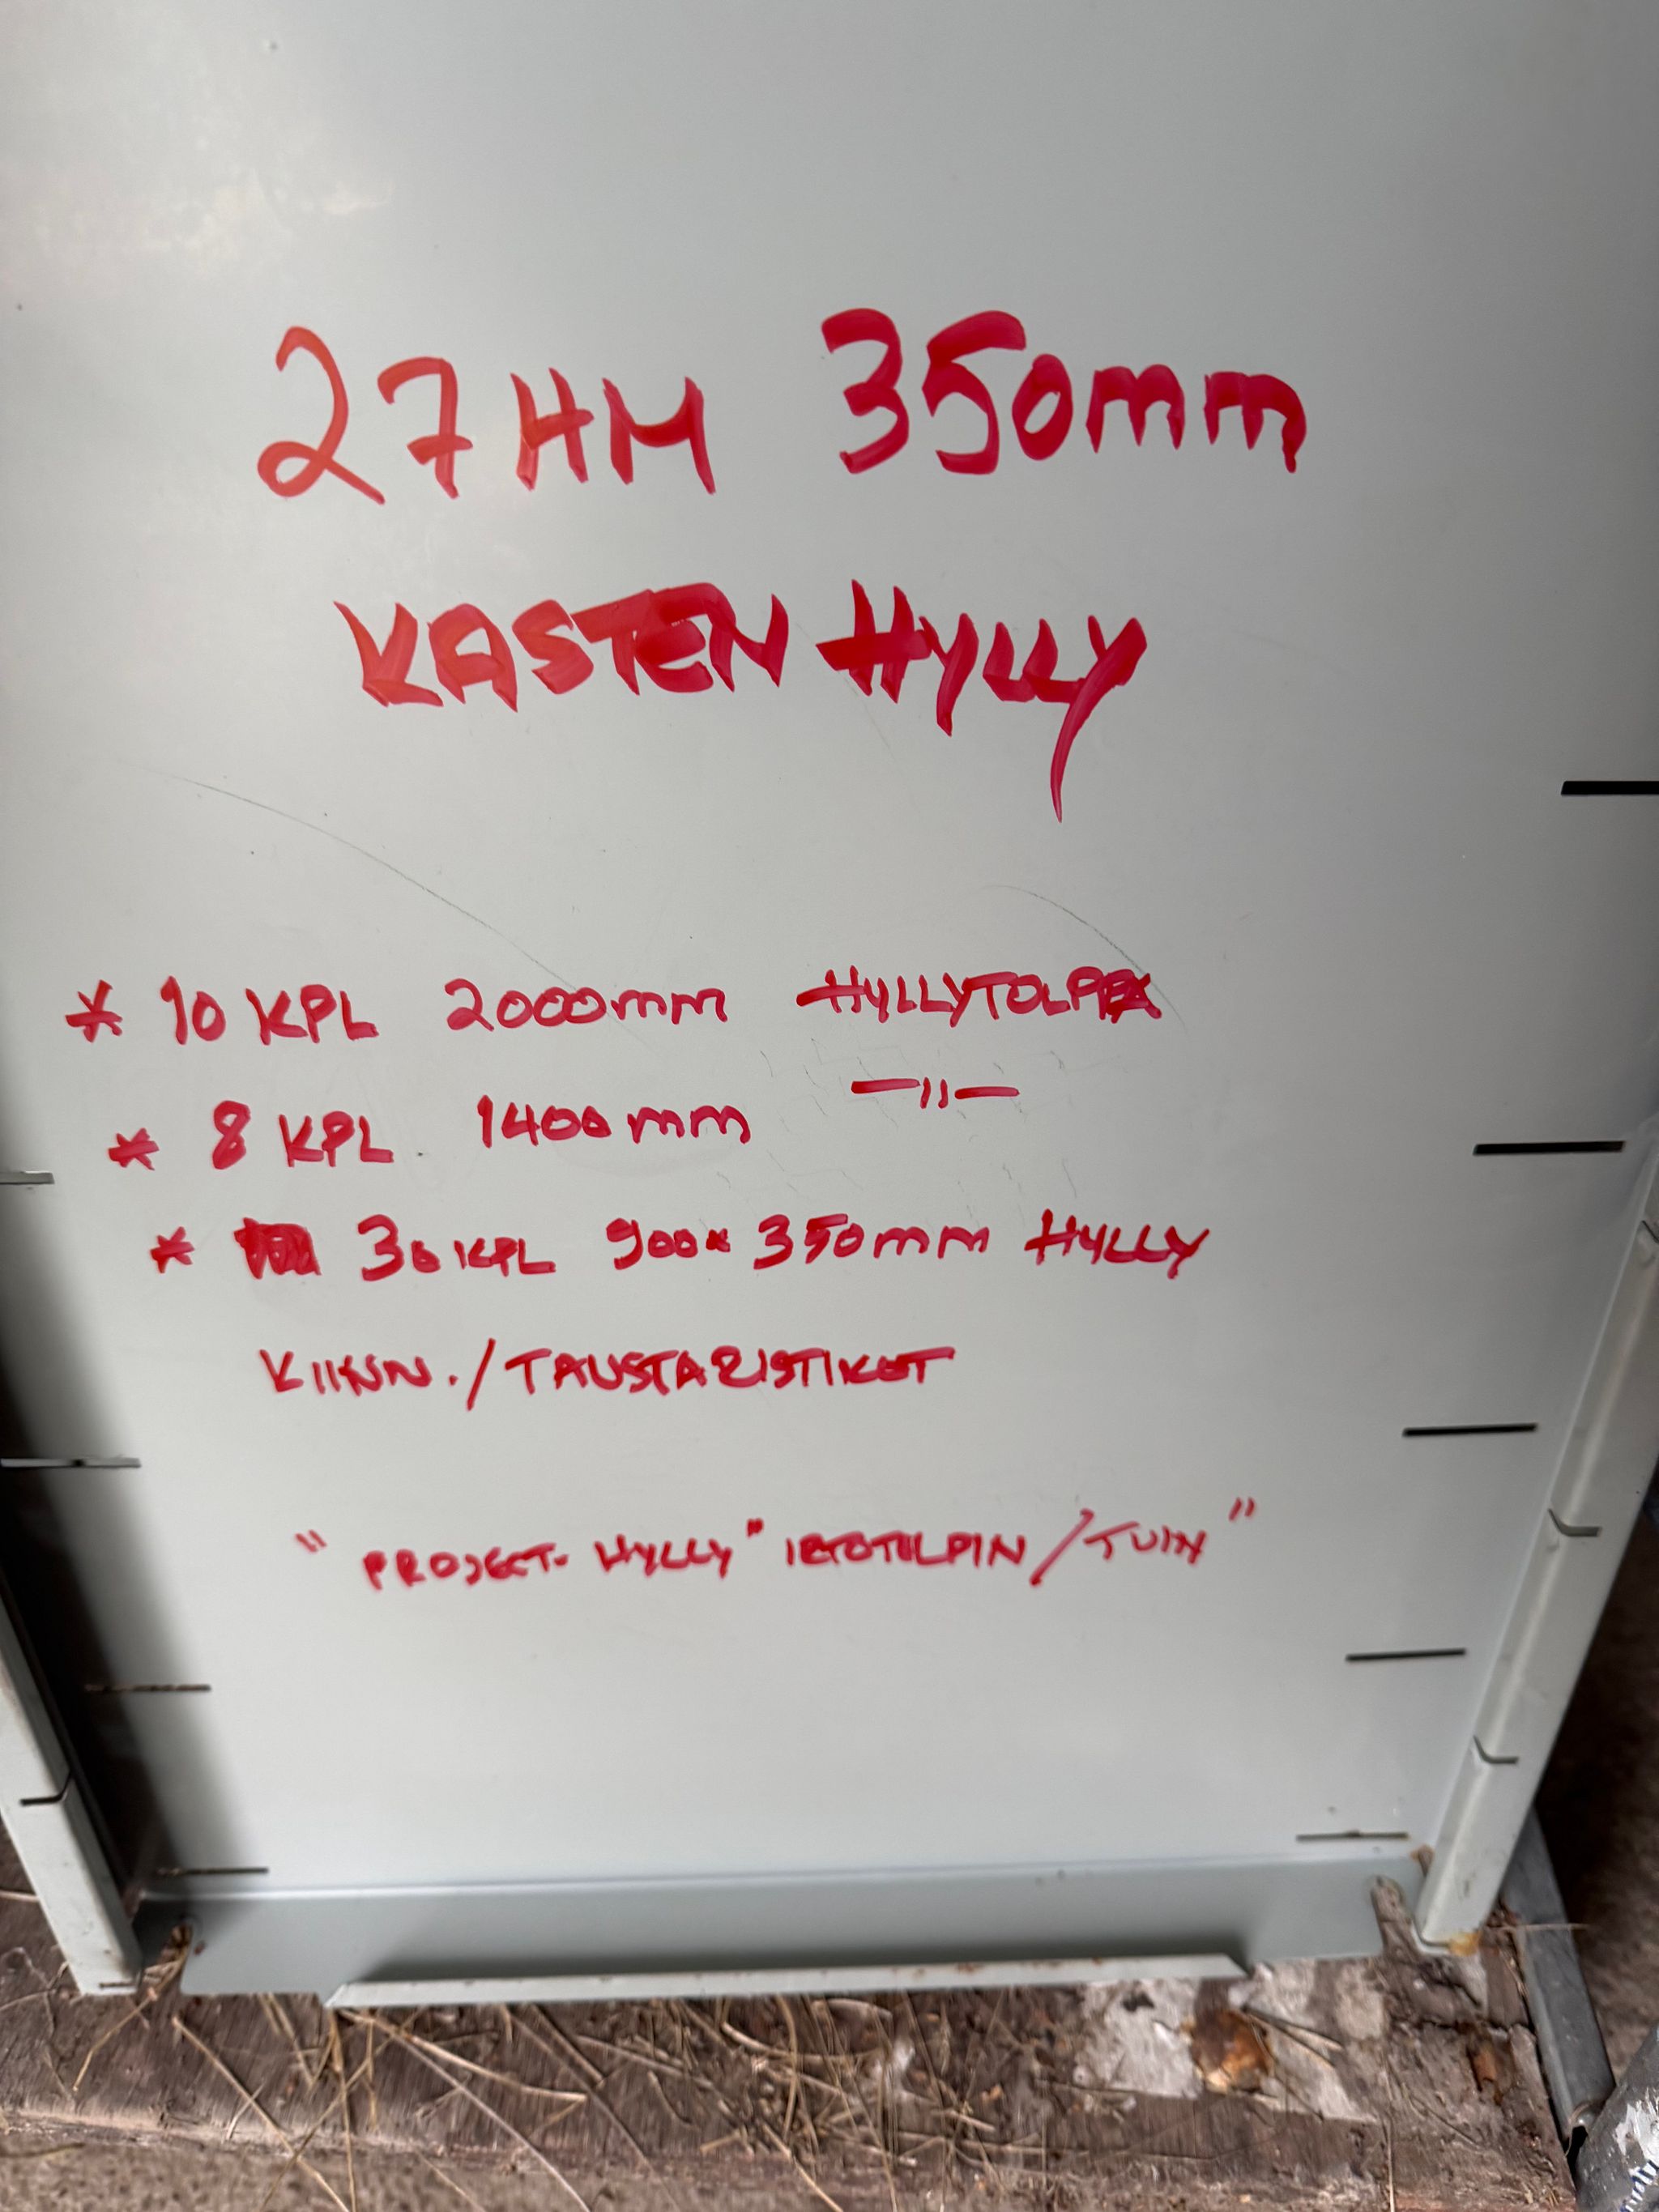 27HM 350mm
KASTEN HYLLY
* 10 KPL 2000mm HYLLYTOLPPA
* 8 KPL 1400mm —"—
* 30 KPL 900x350mm HYLLY
KIINN./TAUSTARISTIKOT
"PROJECT-HYLLY" IRTOTOLPIN/TUIN"